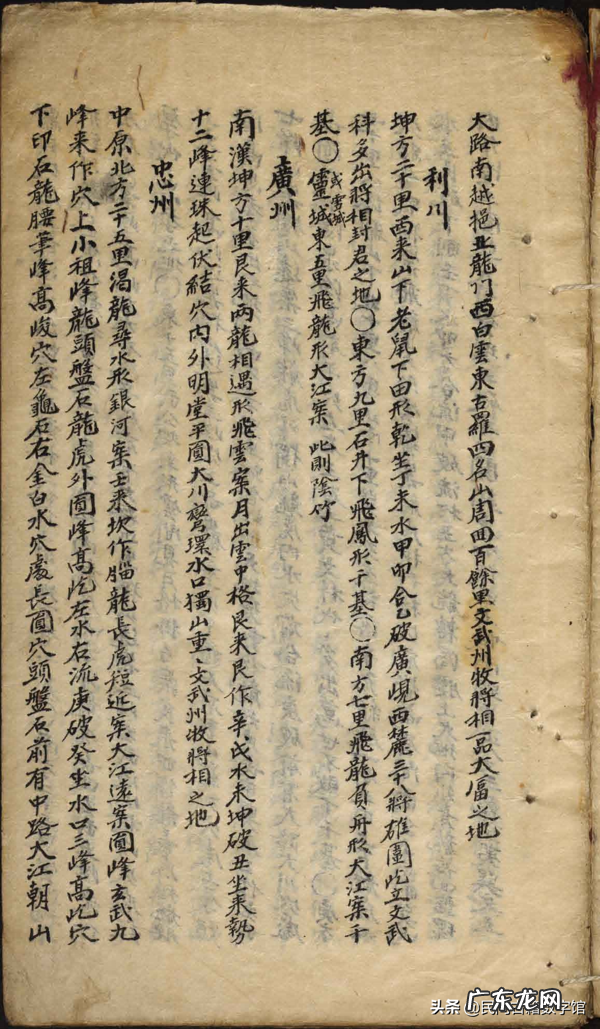 大路南越挹北龍门西白雲東古羅四名山周回百餘里文武州牧將相一品大富之地
利川
坤方二十里西来山下老鼠下田形乾坐丁未水甲卯合乙破廣峴西麓三十八將雄圖屹立文武
科多出將相封君之地〇東方九里石井下飛鳳形千基〇南方七里飛龍負舟形大江案千
基〇靈城東五里飛龍形大江案 此則陰竹
或雪城
廣州
南漢坤方十里艮来両龍相遇形飛雲案月出雲中格艮来艮作辛戌水未坤破丑坐来勢
十二峰連珠起伏結穴内外明堂平圓大川彎環水口獨山重〻文武州牧將相之地
忠州
中原北方二十五里渴龍尋水形銀河案壬来坎作腦龍長虎短近案大江遠案圓峰玄武九
峰来作穴上小祖峰龍頭盤石龍虎外圓峰高屹左水右流庚破癸坐水口三峰高屹穴
下印石龍腰華峰高峻穴左龜石右金白水穴處長圓穴頭盤石前有中路大江朝山
头条 @民间古籍数字馆
广东龙网